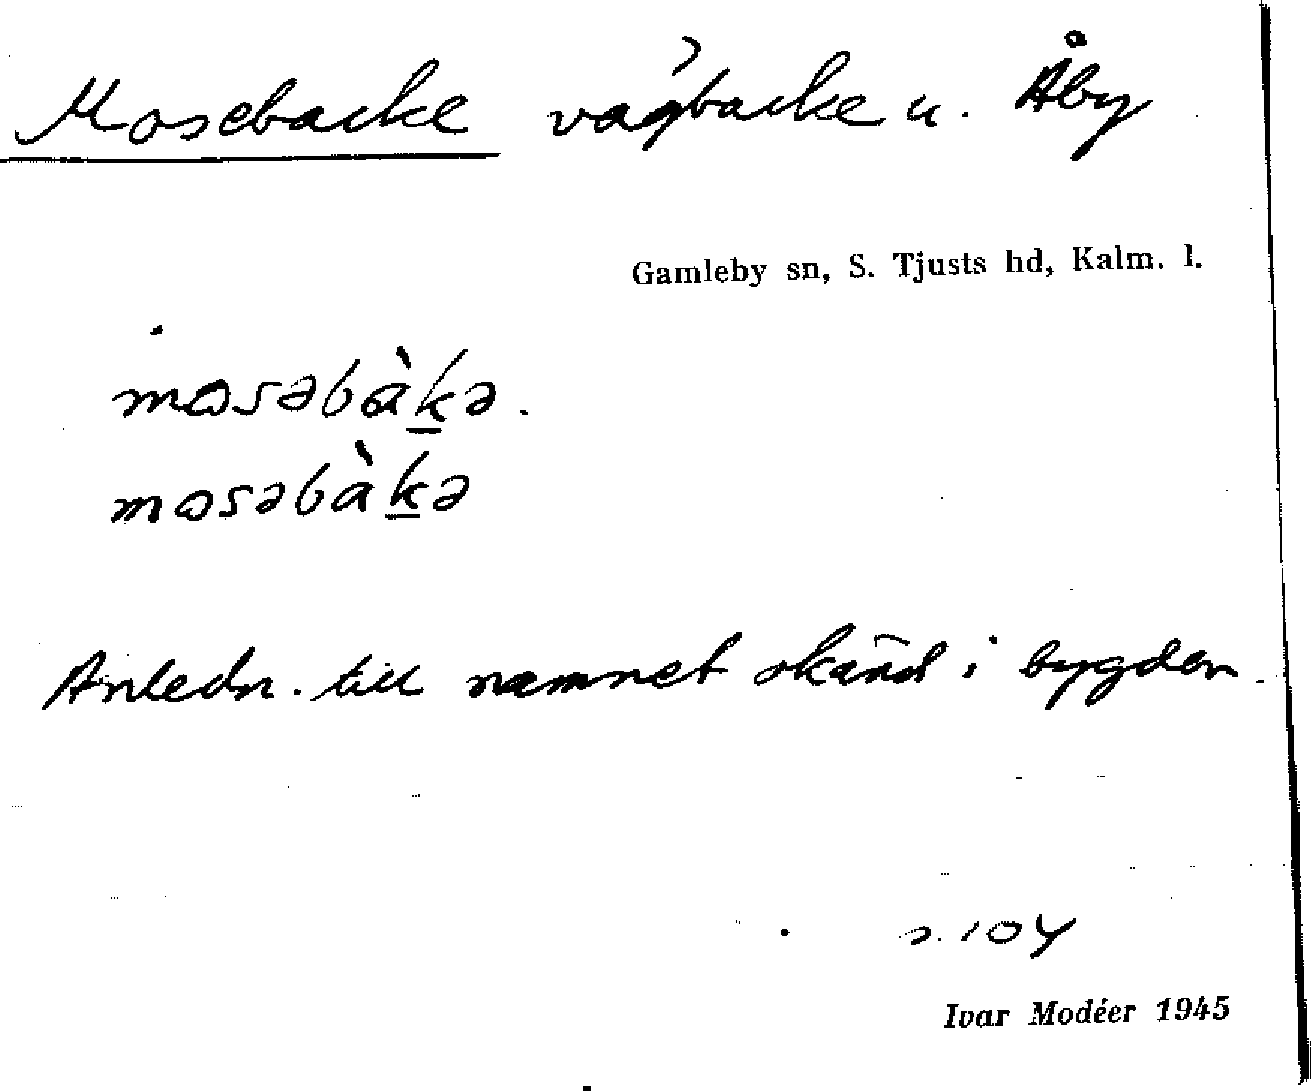 Mosebacke vägbacke u. Åby
Gamleby sn, S. Tjusts hd, Kalm. l.
mosəbàk̲ə.
mosəbàk̲ə
Anledn. till namnet okänd i bygden.
s. 104
Ivar Modéer 1945